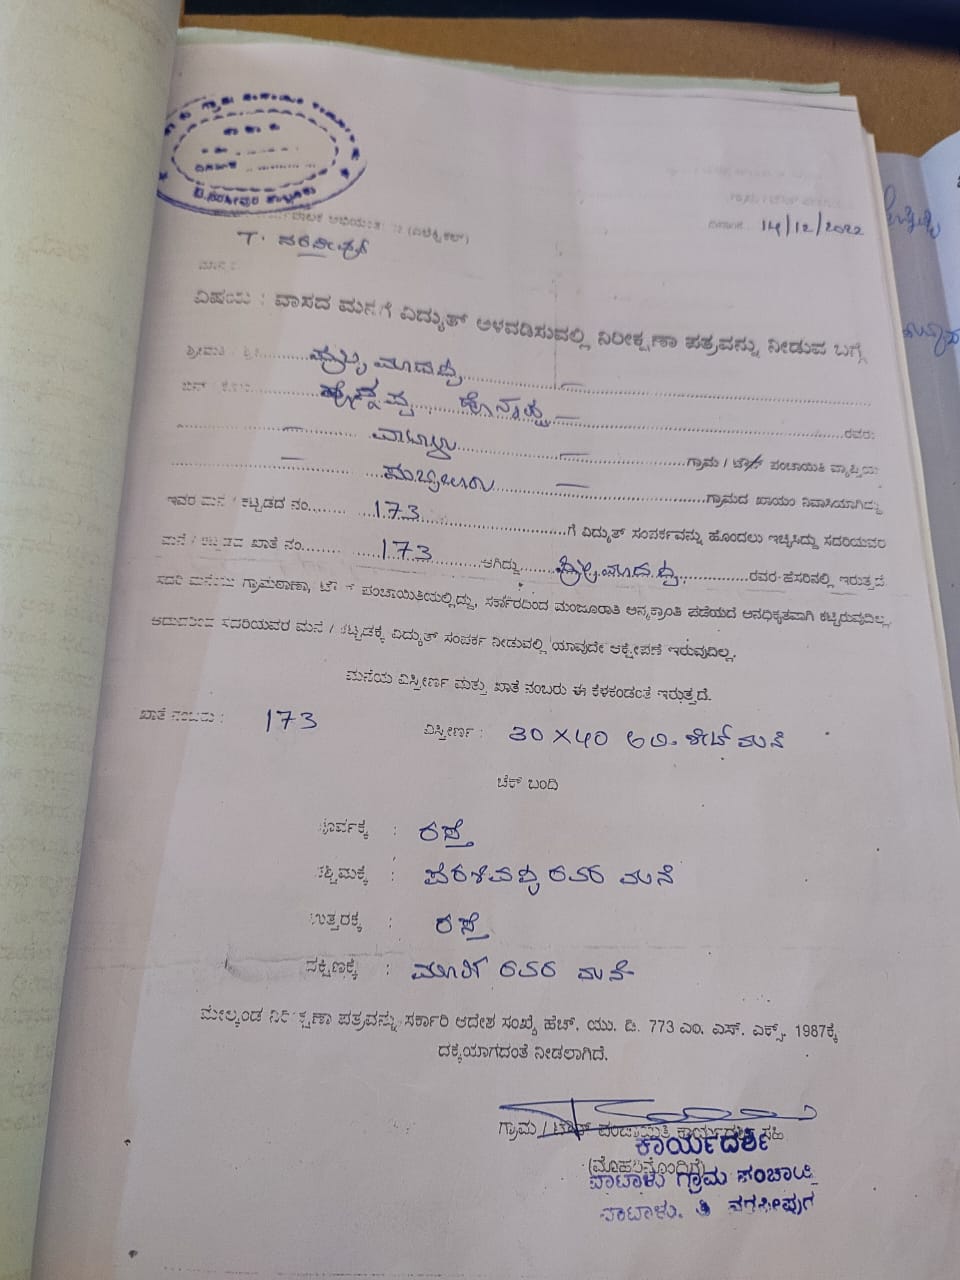 ದಿನಾಂಕ 14/12/2022
T. ನರಸೀಪುರ
ವಿಷಯ : ವಾಸದ ಮನೆಗೆ ವಿದ್ಯುತ್ ಅಳವಡಿಸುವಲ್ಲಿ ನಿರೀಕ್ಷಣಾ ಪತ್ರವನ್ನು ನೀಡುವ ಬಗ್ಗೆ
ಶ್ರೀಮತಿ / ಶ್ರೀ
ಹೊನ್ನಪ್ಪ ರವರು
ವಾಟಾಳು ಗ್ರಾಮ / ಟೌನ್ ಪಂಚಾಯಿತಿ ವ್ಯಾಪ್ತಿಯ
ಗ್ರಾಮದ ಖಾಯಂ ನಿವಾಸಿಯಾಗಿದ್ದು
ಇವರ ಮನೆ / ಕಟ್ಟಡದ ನಂ. 173 ಗೆ ವಿದ್ಯುತ್ ಸಂಪರ್ಕವನ್ನು ಹೊಂದಲು ಇಚ್ಛಿಸಿದ್ದು ಸದರಿಯವರ
ಮನೆ / ಕಟ್ಟಡದ ಖಾತೆ ನಂ. 173 ಆಗಿದ್ದು ರವರ ಹೆಸರಿನಲ್ಲಿ ಇರುತ್ತದೆ
ಸದರಿ ಮನೆಯು ಗ್ರಾಮಠಾಣಾ, ಟೌನ್ ಪಂಚಾಯಿತಿಯಲ್ಲಿದ್ದು, ಸರ್ಕಾರದಿಂದ ಮಂಜೂರಾತಿ ಪಡೆಯದೆ ಅನಧಿಕೃತವಾಗಿ ಕಟ್ಟಿರುವುದಿಲ್ಲ.
ಆದುದರಿಂದ ಸದರಿಯವರ ಮನೆ / ಕಟ್ಟಡಕ್ಕೆ ವಿದ್ಯುತ್ ಸಂಪರ್ಕ ನೀಡುವಲ್ಲಿ ಯಾವುದೇ ಆಕ್ಷೇಪಣೆ ಇರುವುದಿಲ್ಲ.
ಮನೆಯ ವಿಸ್ತೀರ್ಣ ಮತ್ತು ಖಾತೆ ನಂಬರು ಈ ಕೆಳಕಂಡಂತೆ ಇರುತ್ತದೆ.
ಖಾತೆ ನಂಬರು : 173 ವಿಸ್ತೀರ್ಣ : 30 X 40 ಶೀಟ್ ಮನೆ
ಚೆಕ್ ಬಂದಿ
ಪೂರ್ವಕ್ಕೆ : ರಸ್ತೆ
ಪಶ್ಚಿಮಕ್ಕೆ : ಪರಶಿವಪ್ಪ ರವರ ಮನೆ
ಉತ್ತರಕ್ಕೆ : ರಸ್ತೆ
ದಕ್ಷಿಣಕ್ಕೆ : ರವರ ಮನೆ
ಮೇಲ್ಕಂಡ ನಿರೀಕ್ಷಣಾ ಪತ್ರವನ್ನು ಸರ್ಕಾರಿ ಆದೇಶ ಸಂಖ್ಯೆ ಹೆಚ್. ಯು. ಡಿ. 773 ಎಂ. ಎಸ್. ಎಕ್ಸ್. 1987ಕ್ಕೆ
ದಕ್ಕೆಯಾಗದಂತೆ ನೀಡಲಾಗಿದೆ.
ಗ್ರಾಮ / ಟೌನ್ ಪಂಚಾಯಿತಿ ಕಾರ್ಯದರ್ಶಿ ಸಹಿ
ಕಾರ್ಯದರ್ಶಿ
(ಮೊಹರಿನೊಂದಿಗೆ)
ವಾಟಾಳು ಗ್ರಾಮ ಪಂಚಾಯ್ತಿ
ವಾಟಾಳು. ತಿ ನರಸೀಪುರ